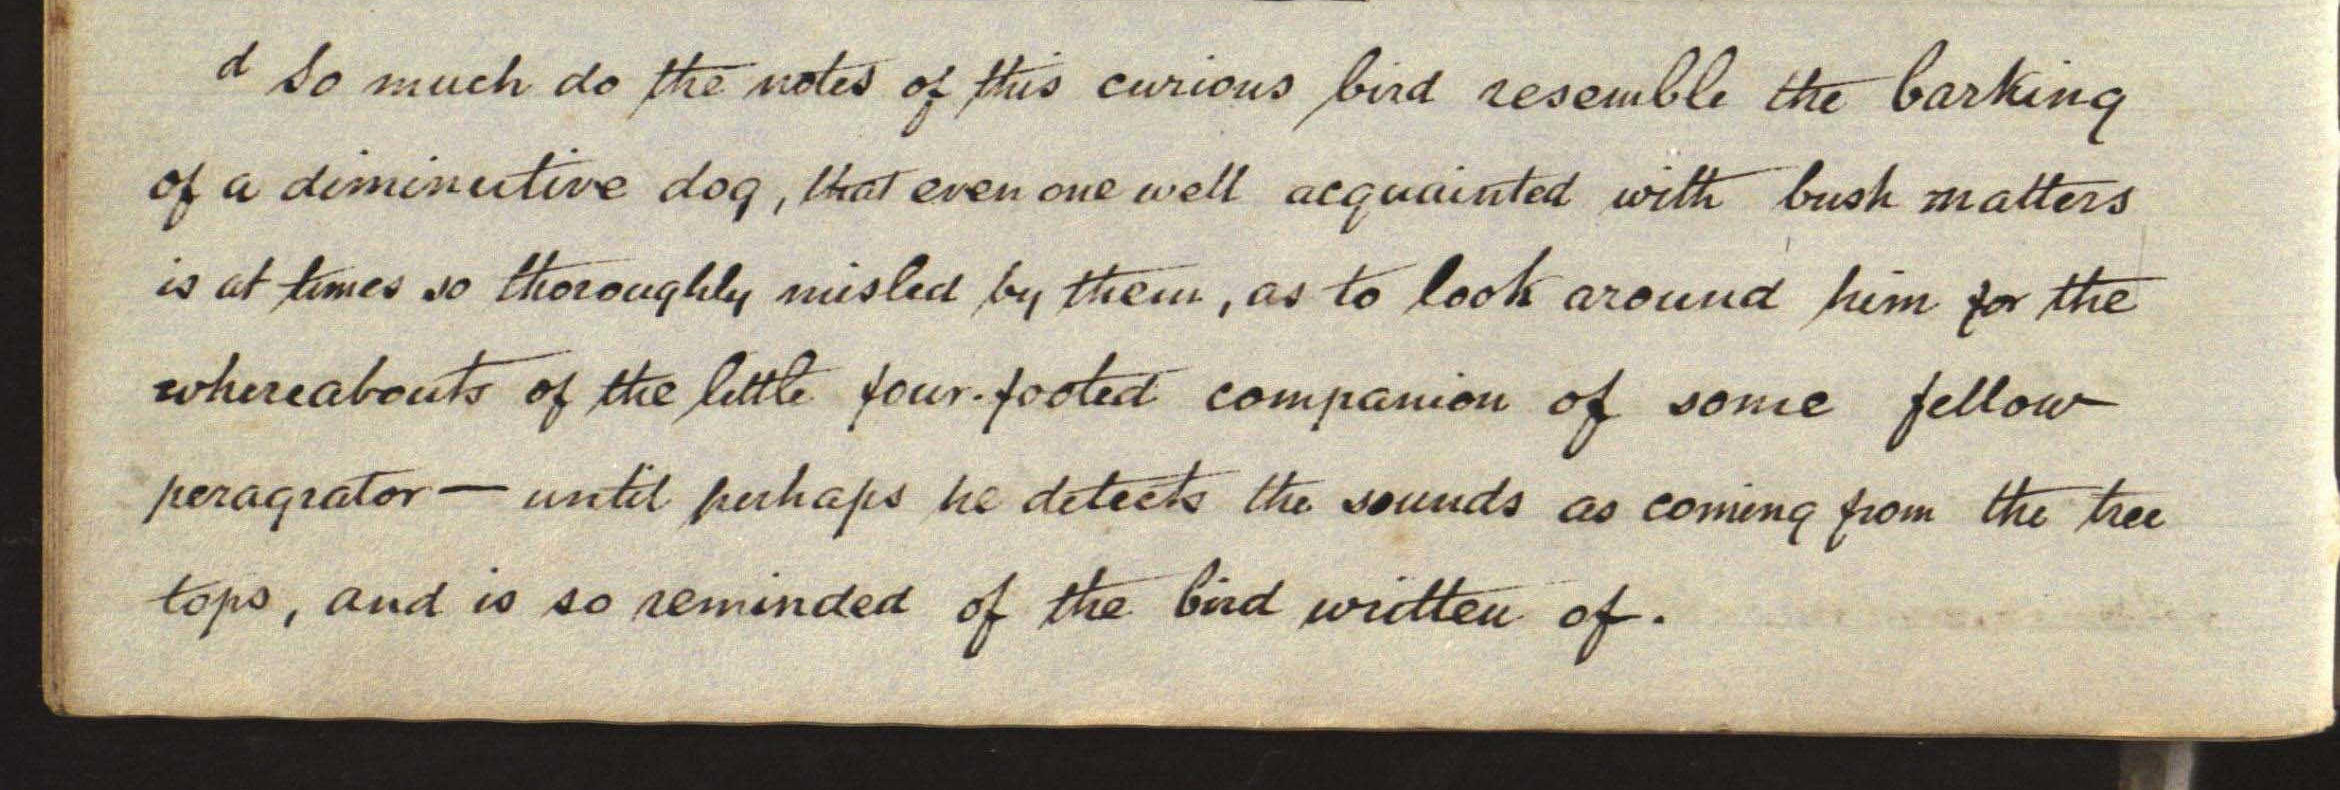 d So much do the notes of this curious bird resemble the barking
of a diminutive dog, that even one well acquainted with bush matters
is at times so thoroughly misled by them, as to look around him for the
whereabouts of the little four-footed companion of some fellow
peragrator — until perhaps he detects the sounds as coming from the tree
tops, and is so reminded of the bird written of.